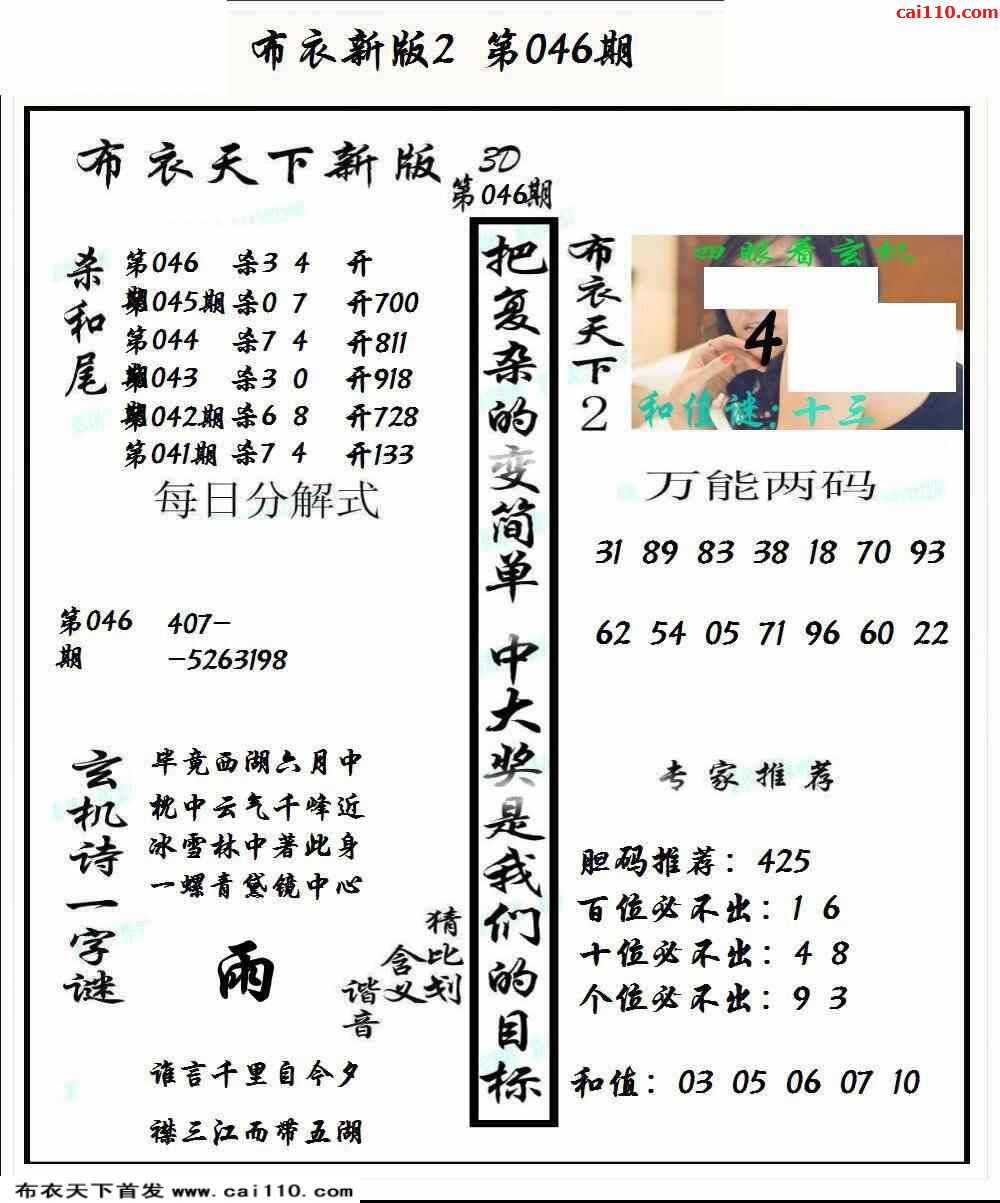 cai110.com
布衣新版2 第046期
布衣天下新版
3D
第046期
杀和尾
第046 杀3 4 开
第045期 杀0 7 开700
第044 杀7 4 开811
第043 杀3 0 开918
第042期 杀6 8 开728
第041期 杀7 4 开133
每日分解式
第046期
407-
-5263198
玄机诗一字谜
毕竟西湖六月中
枕中云气千峰近
冰雪林中著此身
一螺青黛镜中心
雨
猜比划
含义
谐音
谁言千里自今夕
襟三江而带五湖
把复杂的变简单 中大奖是我们的目标
布衣天下2
四眼看玄机
4
和值谜:十三
万能两码
31 89 83 38 18 70 93
62 54 05 71 96 60 22
专家推荐
胆码推荐：425
百位必不出：1 6
十位必不出：4 8
个位必不出：9 3
和值：03 05 06 07 10
布衣天下首发 www.cai110.com